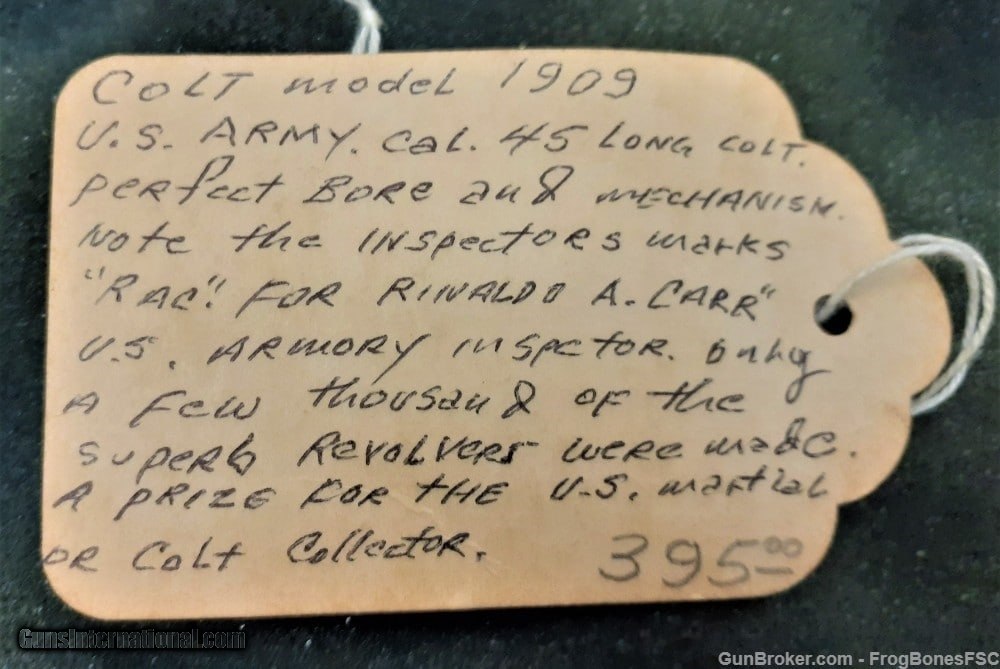 COLT model 1909
U.S. ARMY. Cal. 45 LONG COLT.
perfect BORE and MECHANISM.
Note the INspectors marks
"RAC". FOR RINALDO A. CARR"
U.S. ARMORY inspctor. Only
A few thousand of the
superb Revolvers were made.
A PRIZE FOR THE U.S. martial
or Colt Collector.
395.00
GunsInternational.com
GunBroker.com - FrogBonesFSC